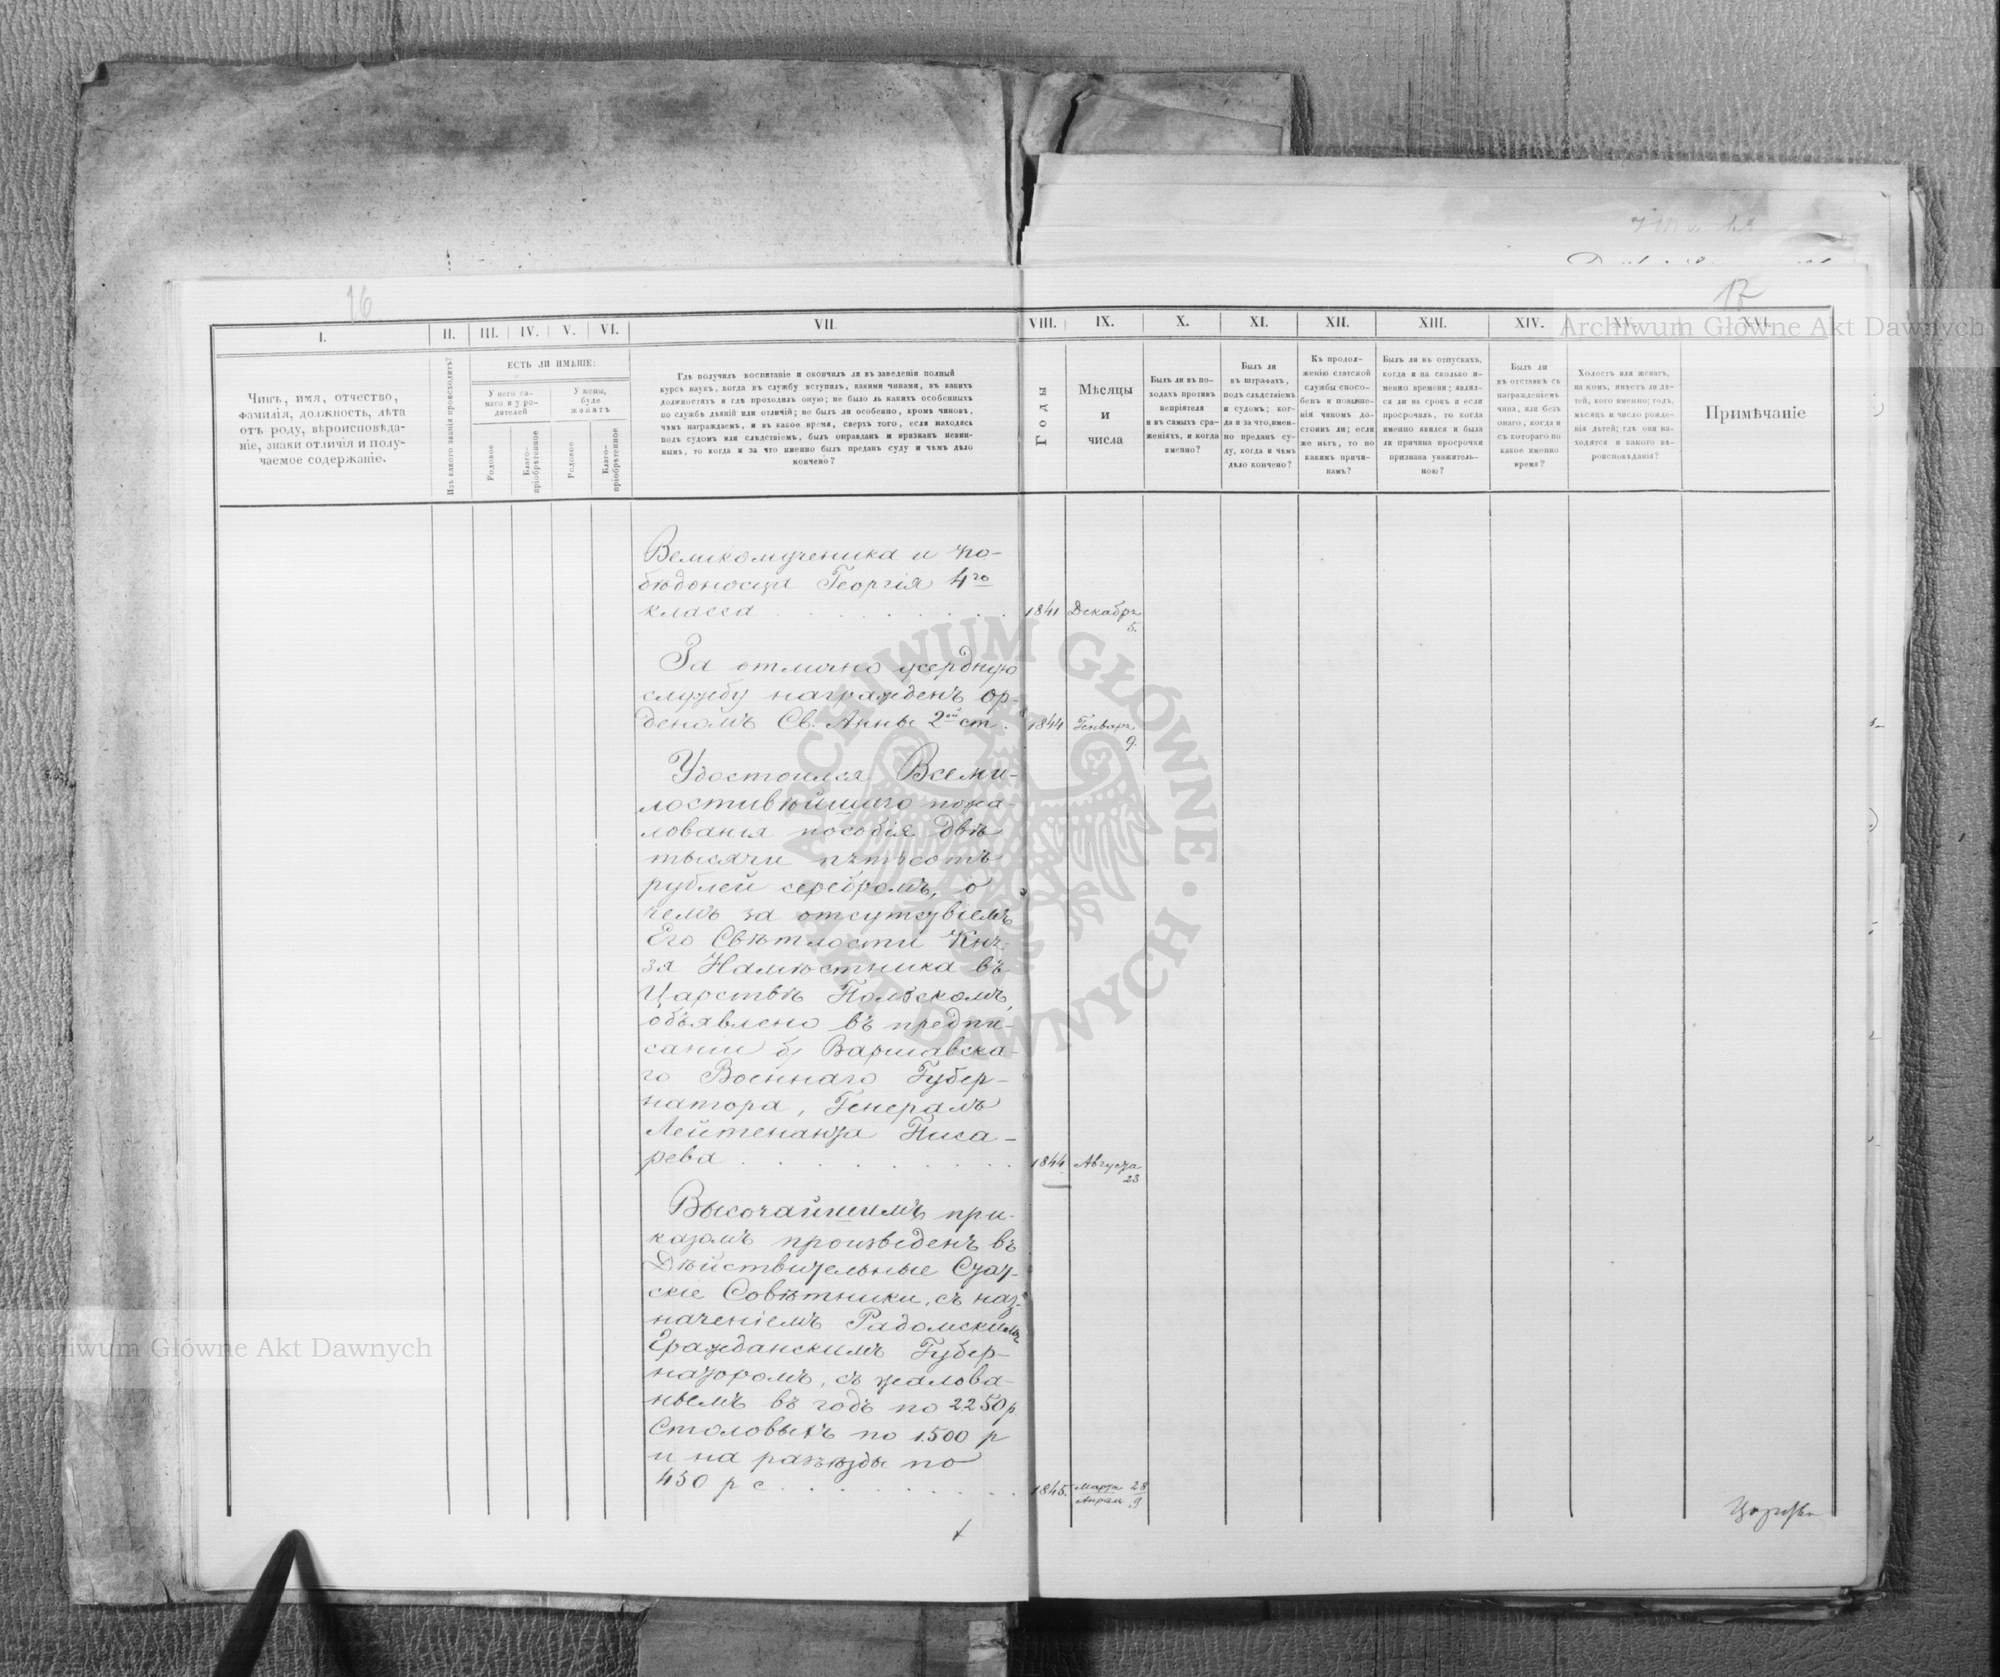 16
17
I.
II.
III.
IV.
V.
VI.
VII.
VIII.
IX.
X.
XI.
XII.
XIII.
XIV.
XV.
XVI.
Чинъ, имя, отчество,
фамилія, должность, лѣта
отъ роду, вѣроисповѣда-
ніе, знаки отличія и полу-
чаемое содержаніе.
Изъ какого званія происходитъ?
ЕСТЬ ЛИ ИМѢНІЕ:
У него са-
маго и у ро-
дителей
У жены,
буде
женатъ
Родовое
Благо-
пріобрѣтенное
Родовое
Благо-
пріобрѣтенное
Гдѣ получилъ воспитаніе и окончилъ ли въ заведеніи полный
курсъ наукъ, когда въ службу вступилъ, какими чинами, въ какихъ
должностяхъ и гдѣ проходилъ оную; не было ль какихъ особенныхъ
по службѣ дѣяній или отличій; не былъ ли особенно, кромѣ чиновъ,
чѣмъ награждаемъ, и въ какое время, сверхъ того, если находясь
подъ судомъ или слѣдствіемъ, былъ оправданъ и признанъ невин-
нымъ, то когда и за что именно былъ преданъ суду и чѣмъ дѣло
кончено?
Годы
Мѣсяцы
и
числа
Былъ ли въ по-
ходахъ противъ
непріятеля
и въ самыхъ сра-
женіяхъ, и когда
именно?
Былъ ли
въ штрафахъ,
подъ слѣдствіемъ
и судомъ; ког-
да и за что, имен-
но преданъ су-
ду, когда и чѣмъ
дѣло кончено?
Къ продол-
женію статской
службы спосо-
бенъ и повыше-
нія чиномъ до-
стоинъ ли; если
же нѣтъ, то по
какимъ причи-
намъ?
Былъ ли въ отпускахъ,
когда и на сколько и-
менно времени; являл-
ся ли на срокъ и если
просрочилъ, то когда
именно явился и была
ли причина просрочки
признана уважитель-
ною?
Былъ ли
въ отставкѣ съ
награжденіемъ
чина, или безъ
онаго, когда и
съ котораго по
какое именно
время?
Холостъ или женатъ,
на комъ, имѣетъ ли дѣ-
тей, кого именно; годъ,
мѣсяцъ и число рожде-
нія дѣтей; гдѣ они на-
ходятся и какого вѣ-
роисповѣданія?
Примѣчаніе
Великомученика и По-
бѣдоносца Георгія 4го
класса . . . . . . . 1841 Декабрь
5.
За отлично усердную
службу награжденъ ор-
деномъ Св. Анны 2ой ст. 1844 Генваря
9.
Удостоился Всеми-
лостивѣйшаго пожа-
лованія пособія двѣ
тысячи пятьсотъ
рублей серебромъ, о
чемъ за отсутствіемъ
Его Свѣтлости Кня-
зя Намѣстника въ
Царствѣ Польскомъ,
объявлено въ предпи-
саніи б. Варшавска-
го Военнаго Губер-
натора, Генералъ
Лейтенанта Писа-
рева . . . . . . . . 1844 Августа
23
Высочайшимъ при-
казомъ произведенъ въ
Дѣйствительные Стат-
скіе Совѣтники, съ наз-
наченіемъ Радомскимъ
Гражданскимъ Губер-
наторомъ, съ жалова-
ньемъ въ годъ по 2250 р.
Столовыхъ по 1500 р
и на разъѣзды по
450 р с . . . . . . . 1845. Марта 28
Апрѣля 9
Archiwum Główne Akt Dawnych
Archiwum Główne Akt Dawnych
ARCHIWUM GŁÓWNE AKT DAWNYCH